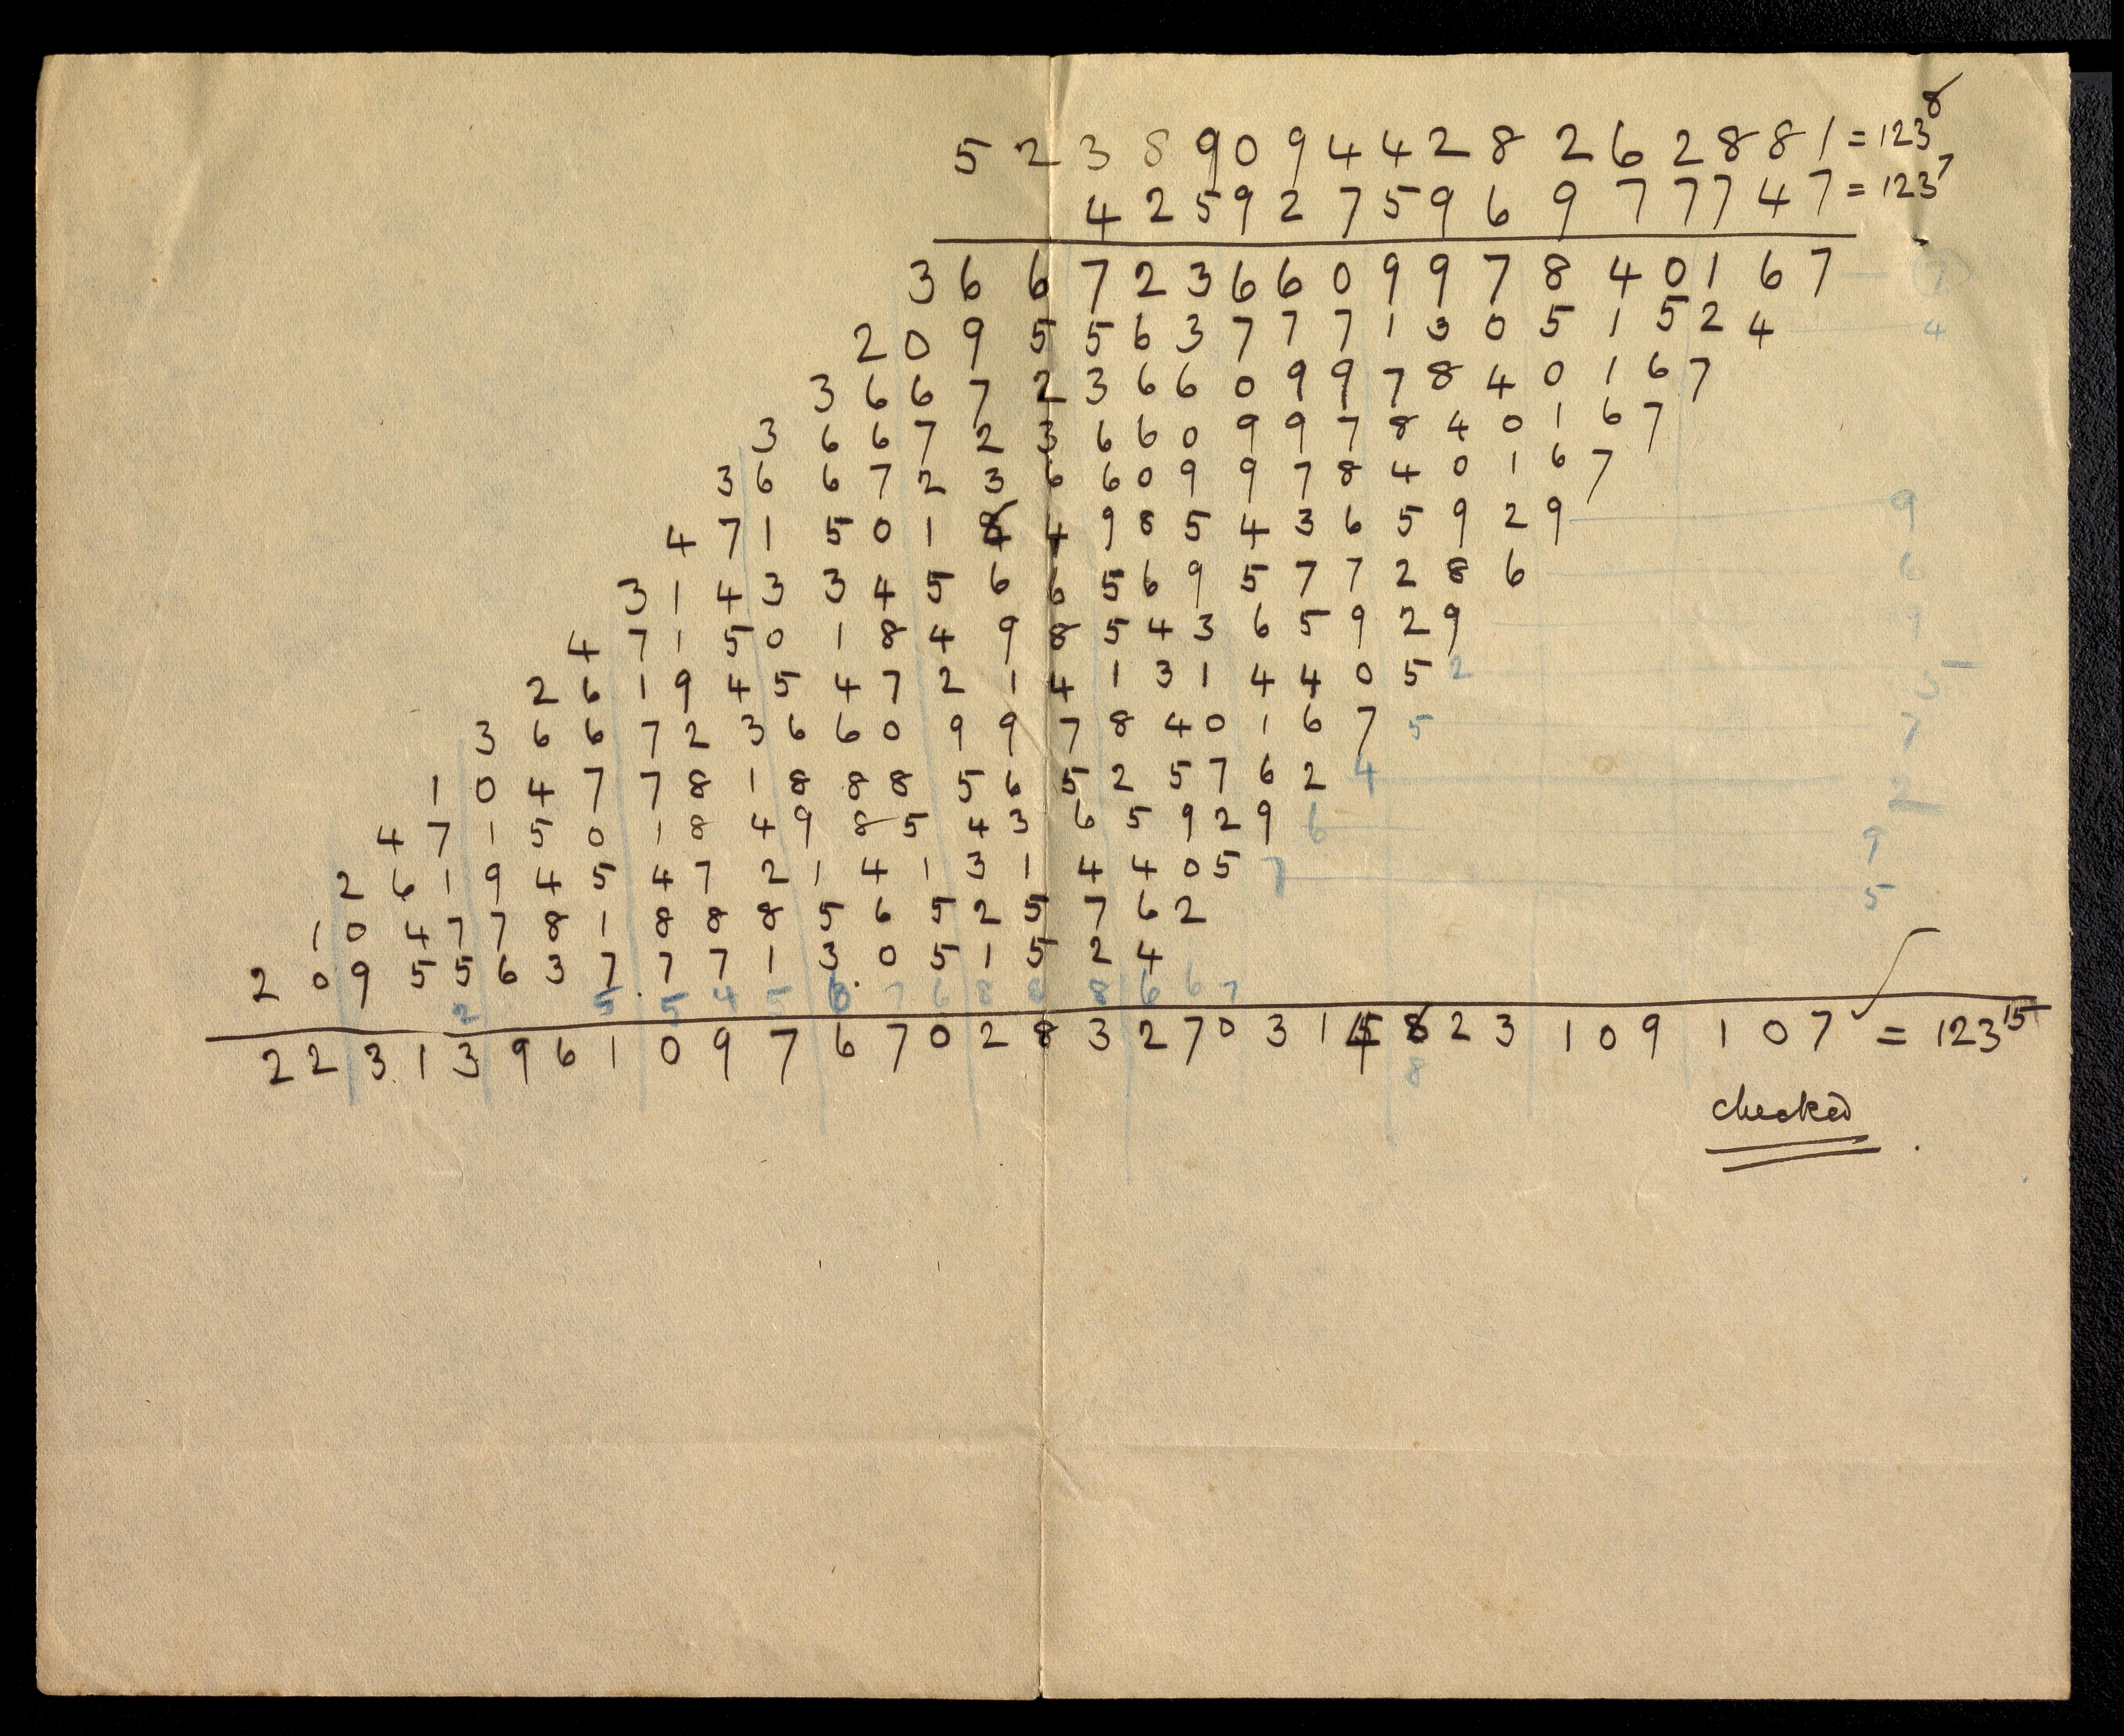 5 2 3 8 9 0 9 4 4 2 8 2 6 2 8 8 1 = 123⁸
4 2 5 9 2 7 5 9 6 9 7 7 7 4 7 = 123⁷
3 6 6 7 2 3 6 6 0 9 9 7 8 4 0 1 6 7 7
2 0 9 5 5 6 3 7 7 7 1 3 0 5 1 5 2 4 4
3 6 6 7 2 3 6 6 0 9 9 7 8 4 0 1 6 7
3 6 6 7 2 3 6 6 0 9 9 7 8 4 0 1 6 7
3 6 6 7 2 3 6 6 0 9 9 7 8 4 0 1 6 7
4 7 1 5 0 1 8 4 9 8 5 4 3 6 5 9 2 9 9
3 1 4 3 3 4 5 6 6 5 6 9 5 7 7 2 8 6 6
4 7 1 5 0 1 8 4 9 8 5 4 3 6 5 9 2 9 9
2 6 1 9 4 5 4 7 2 1 4 1 3 1 4 4 0 5 2 5
3 6 6 7 2 3 6 6 0 9 9 7 8 4 0 1 6 7 5 7
1 0 4 7 7 8 1 8 8 8 5 6 5 2 5 7 6 2 4 2
4 7 1 5 0 1 8 4 9 8 5 4 3 6 5 9 2 9 6 9
2 6 1 9 4 5 4 7 2 1 4 1 3 1 4 4 0 5 7 5
1 0 4 7 7 8 1 8 8 8 5 6 5 2 5 7 6 2
2 0 9 5 5 6 3 7 7 7 1 3 0 5 1 5 2 4
2 5 5 4 5 6 7 6 8 8 8 6 6 7
2 2 3 1 3 9 6 1 0 9 7 6 7 0 2 8 3 2 7 0 3 1 4 8 2 3 1 0 9 1 0 7 = 123¹⁵
8
checked